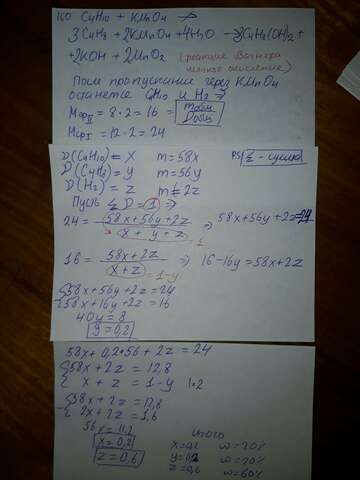 160 C₄H₁₀ + KMnO₄ ↛
3C₄H₈ + 2KMnO₄ + 4H₂O → 3C₄H₈(OH)₂ +
+ 2KOH + 2MnO₂ (реакция Вагнера
мягкое окисление)
После пропускание через KMnO₄
останется C₄H₁₀ и H₂ ⇒
M = 8·2 = 16 =
M = 12·2 = 24
D(C₄H₁₀) = x m = 58x
D(C₄H₈) = y m = 56y
D(H₂) = z m = 2z
Пусть Σ D = 1 ⇒
PS/ Σ - сумма
24 = (58x + 56y + 2z) / (x + y + z) = 1 ⇒ 58x + 56y + 2z = 24
16 = (58x + 2z) / (x + z) = 1-y ⇒ 16 - 16y = 58x + 2z
58x + 56y + 2z = 24
58x + 16y + 2z = 16
40y = 8
y = 0,2
58x + 0,2*56 + 2z = 24
58x + 2z = 12,8
x + z = 1 - y |·2
58x + 2z = 12,8
2x + 2z = 1,6
56x = 11,2
x = 0,2
z = 0,6
Итого
x = 0,2 ω = 20%
y = 0,2 ω = 20%
z = 0,6 ω = 60%